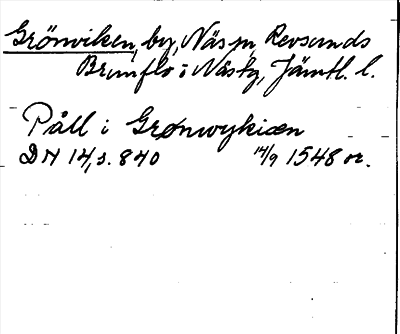 Grönviken, by, Näs sn, Revsunds
Brunflo o Näs tg, Jämtl. l.
Påll i Grønwykiæn
DN 14, s. 840 14/9 1548 or.